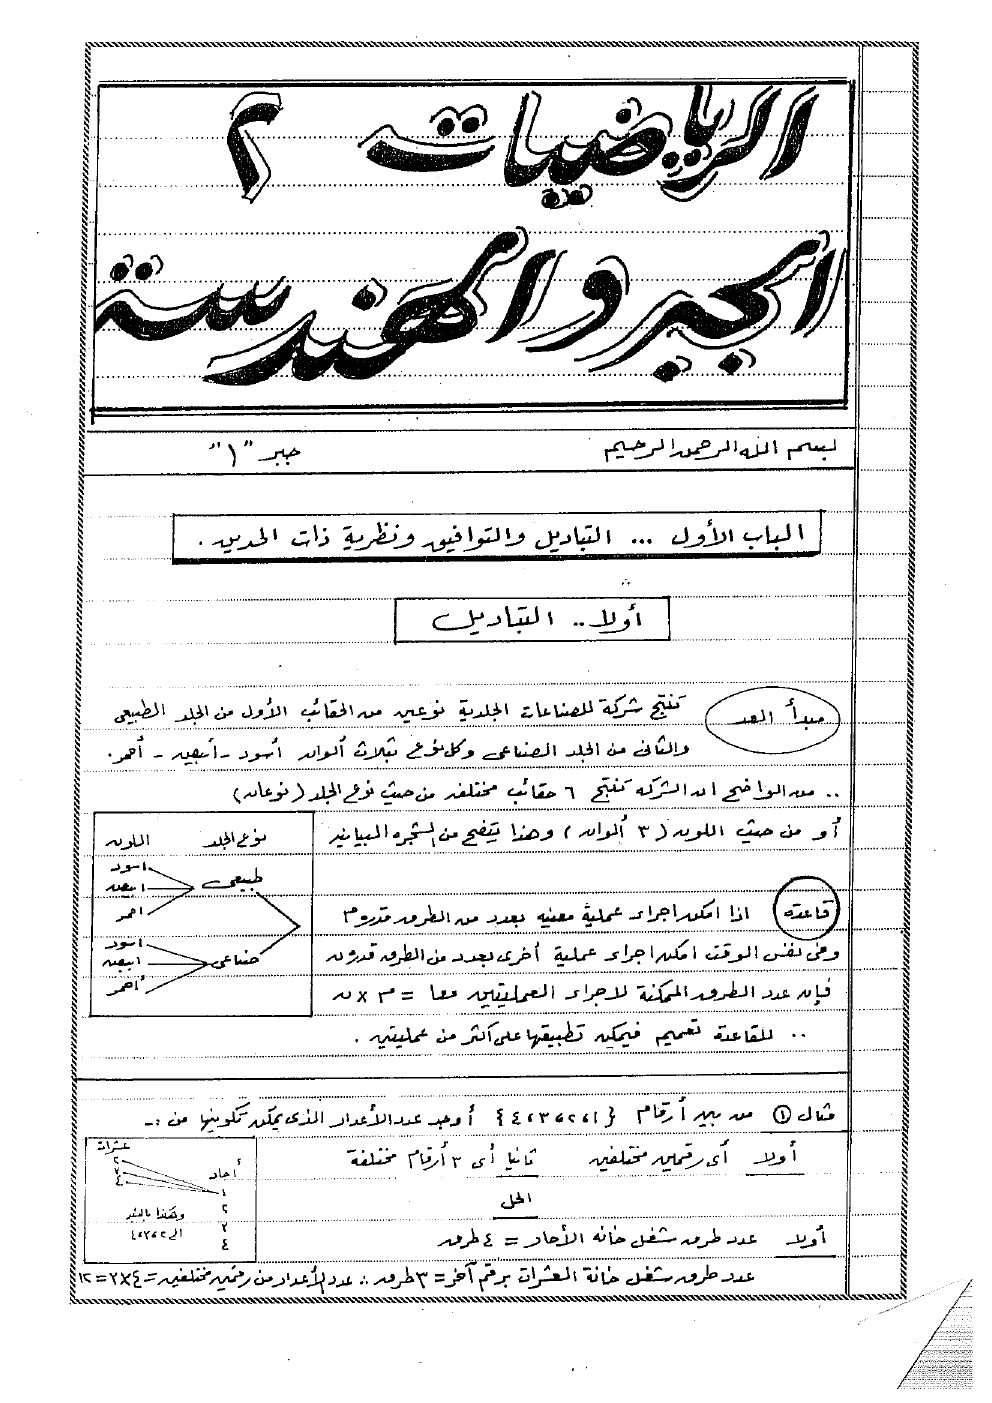 الرياضيات ٢
الجبر والهندسة
بسم الله الرحمن الرحيم جبر "١"
الباب الأول ... التباديل والتوافيق ونظرية ذات الحدين .
أولا .. التباديل
مبدأ العد تنتج شركة للصناعات الجلدية نوعين من الحقائب الأول من الجلد الطبيعى
والثانى من الجلد الصناعى وكل نوع بثلاث ألوان أسود - أبيض - أحمر .
.. من الواضح ان الشركه تنتج ٦ حقائب مختلفه من حيث نوع الجلد (نوعان)
أو من حيث اللون (٣ ألوان) وهذا يتضح من الشجره البيانيه
نوع الجلد اللون
طبيعى
اسود
ابيض
احمر
صناعى
اسود
ابيض
أحمر
قاعده اذا امكن اجراء عملية معينه بعدد من الطرق قدره م
وفى نفس الوقت امكن اجراء عملية أخرى بعدد من الطرق قدره ن
فإن عدد الطرق الممكنة لاجراء العمليتين معا = م × ن
.. للقاعدة تعميم فيمكن تطبيقها على أكثر من عمليتين .
مثال ١ من بين أرقام {١،٢،٣،٤} أوجد عدد الأعداد الذى يمكن تكوينها من :-
أولا أى رقمين مختلفين ثانيا أى ٣ أرقام مختلفة
الحل
أولا عدد طرق شغل خانه الآحاد = ٤ طرق
عدد طرق شغل خانة العشرات برقم آخر = ٣ طرق ∴ عدد الأعداد من رقمين مختلفين = ٤×٣ = ١٢
عشرات
٢
٣
٤
أحاد
١
٢
٣
٤
وهكذا بالنسبه
الى ٢،٣،٤